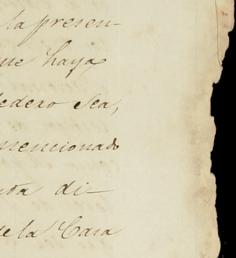 la presen-
ue haya
edero sea,
mencionado
di-
de la Casa